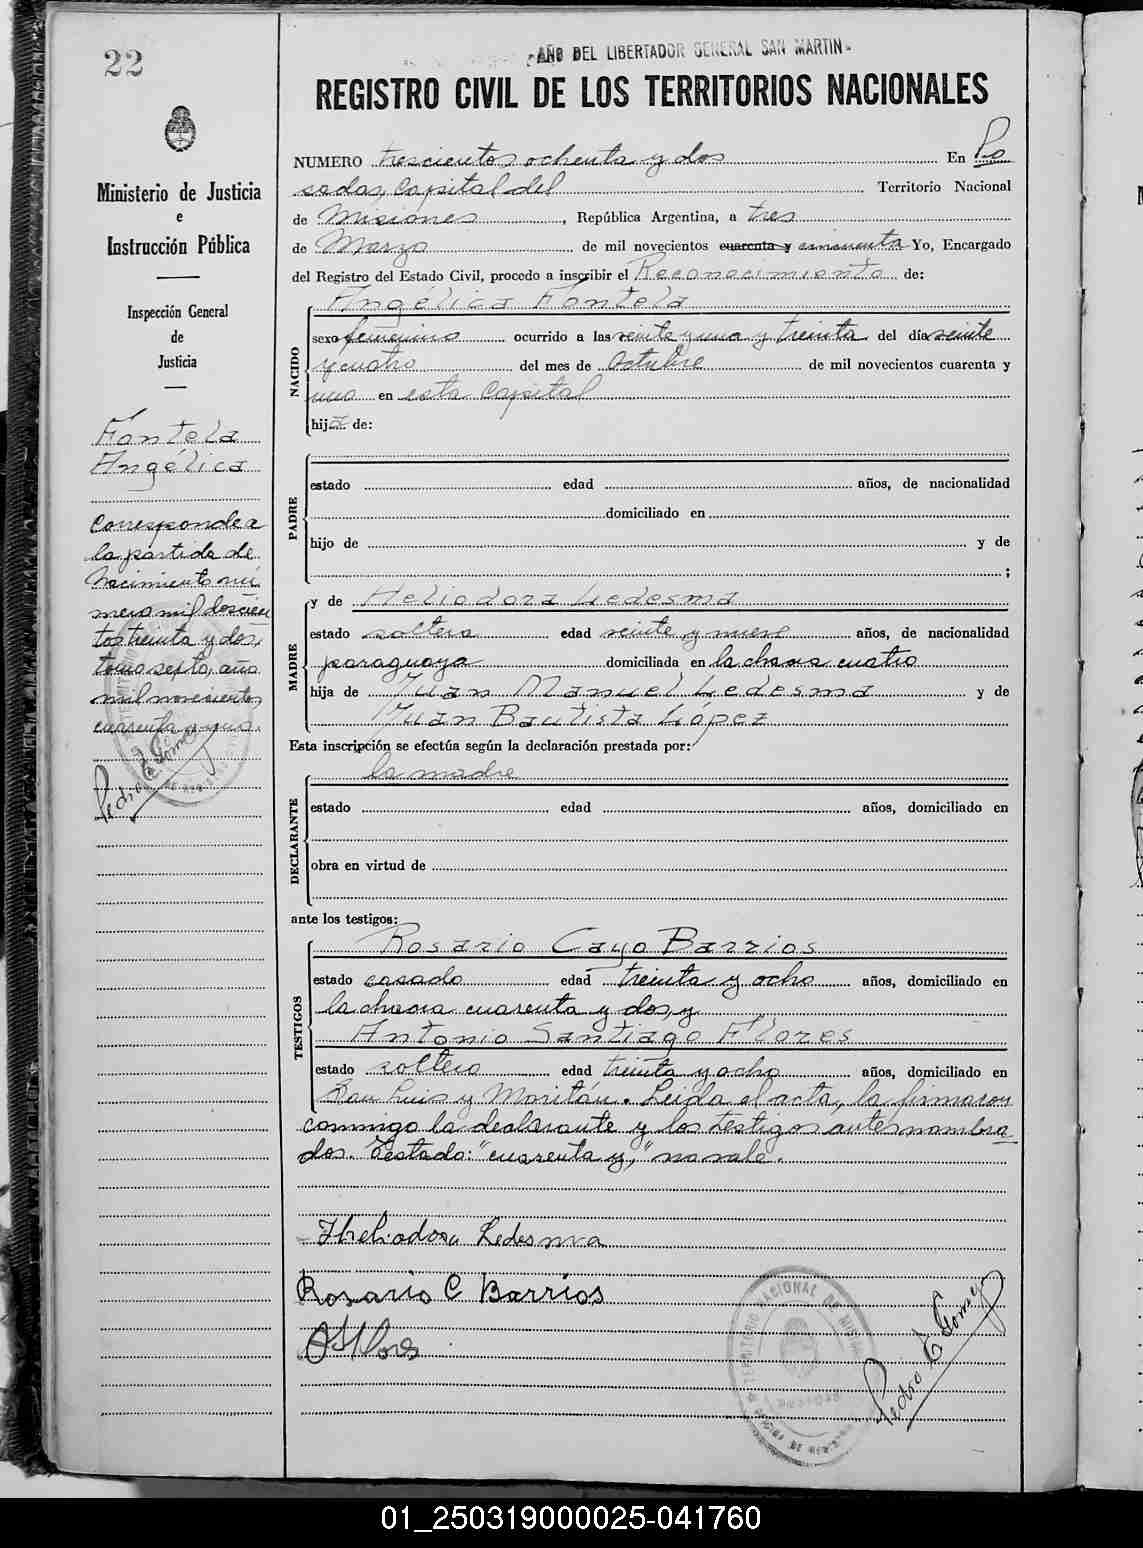 22
"AÑO DEL LIBERTADOR GENERAL SAN MARTIN"
REGISTRO CIVIL DE LOS TERRITORIOS NACIONALES
Ministerio de Justicia
e
Instrucción Pública
Inspección General
de
Justicia
Fontela
Angélica
Corresponde a
la partida de
Nacimiento nú
mero mil doscien
tos treinta y dos,
tomo sexto, año
mil novecientos
cuarenta y uno.
Pedro E Gomez
NUMERO trescientos ochenta y dos En Po
sadas, Capital del Territorio Nacional
de Misiones, República Argentina, a tres
de Marzo de mil novecientos cuarenta y cincuenta Yo, Encargado
del Registro del Estado Civil, procedo a inscribir el Reconocimiento de:
NACIDO
Angélica Fontela
sexo femenino ocurrido a las veinte y una y treinta del día veinte
y cuatro del mes de Octubre de mil novecientos cuarenta y
uno en esta Capital
hija de:
PADRE
estado edad años, de nacionalidad
domiciliado en
hijo de y de
;
MADRE
y de Heliodora Ledesma
estado soltera edad veinte y nueve años, de nacionalidad
paraguaya domiciliada en la chacra cuatro
hija de Juan Manuel Ledesma y de
Juan Bautista López
Esta inscripción se efectúa según la declaración prestada por:
DECLARANTE
la madre
estado edad años, domiciliado en
obra en virtud de
ante los testigos:
TESTIGOS
Rosario Cayo Barrios
estado casado edad treinta y ocho años, domiciliado en
la chacra cuarenta y dos, y
Antonio Santiago Flores
estado soltero edad treinta y ocho años, domiciliado en
San Luis y Moritán. Leída el acta, la firmaron
conmigo la declarante y los testigos antes nombra
dos. Testado: "cuarenta y," no vale.
Theliodora Ledesma
Rosario C Barrios
ASFlores
Pedro E Gomez
TERRITORIO NACIONAL DE MISIONES
POSADAS
01_250319000025-041760